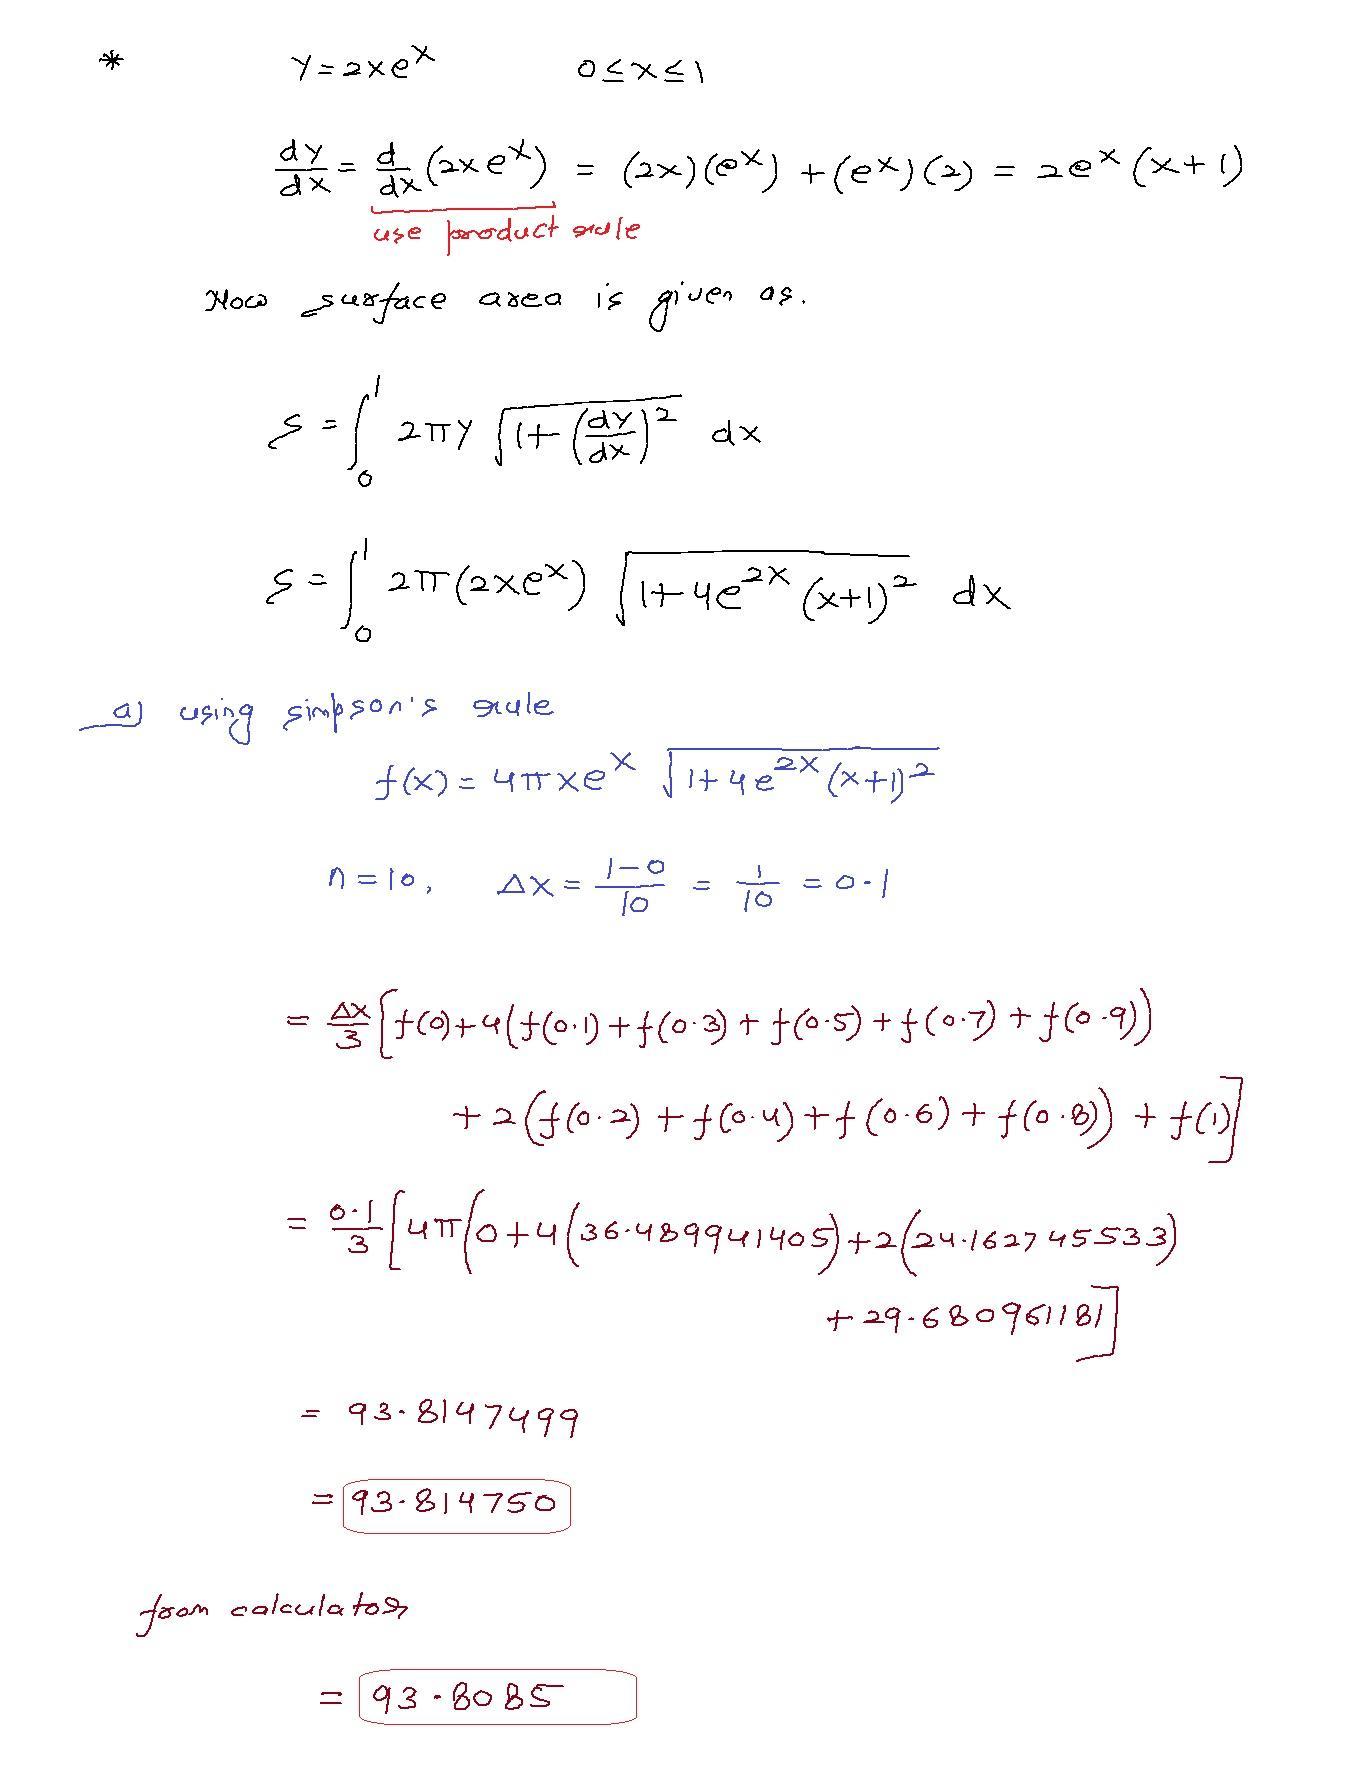 * y = 2xe^x 0 ≤ x ≤ 1
dy/dx = d/dx (2xe^x) = (2x)(e^x) + (e^x)(2) = 2e^x (x+1)
use product rule
Now surface area is given as.
S = ∫_0^1 2πy √(1+(dy/dx)^2) dx
S = ∫_0^1 2π(2xe^x) √(1+4e^{2x}(x+1)^2) dx
a) using simpson's rule
f(x) = 4πxe^x √(1+4e^{2x}(x+1)^2)
n = 10, Δx = (1-0)/10 = 1/10 = 0.1
= Δx/3 [f(0)+4(f(0.1)+f(0.3)+f(0.5)+f(0.7)+f(0.9))
+2(f(0.2)+f(0.4)+f(0.6)+f(0.8))+f(1)]
= 0.1/3 [4π(0+4(36.489941405)+2(24.162745533)
+29.680961181]
= 93.8147499
= 93.814750
from calculator
= 93.8085